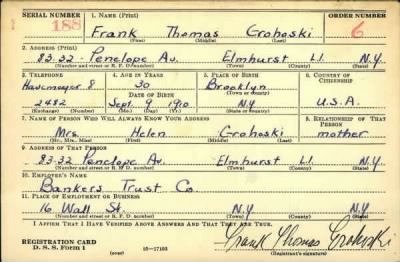 SERIAL NUMBER 1. NAME (Print) ORDER NUMBER
188 Frank Thomas Grohoski 6
(First) (Middle) (Last)
2. ADDRESS (Print)
83-32 Penelope Av. Elmhurst L.I. N.Y.
(Number and street or R. F. D. number) (Town) (County) (State)
3. TELEPHONE 4. AGE IN YEARS 5. PLACE OF BIRTH 6. COUNTRY OF CITIZENSHIP
Havemeyer 8 30 Brooklyn
DATE OF BIRTH (Town or county)
2482 Sept. 9 1910 N.Y. U.S.A.
(Mo.) (Day) (Yr.) (State or country)
7. NAME OF PERSON WHO WILL ALWAYS KNOW YOUR ADDRESS 8. RELATIONSHIP OF THAT PERSON
Mrs. Helen Grohoski mother
(Mr., Mrs., Miss) (First) (Middle) (Last)
9. ADDRESS OF THAT PERSON
83-32 Penelope Av. Elmhurst L.I. N.Y.
(Number and street or R. F. D. number) (Town) (County) (State)
10. EMPLOYER'S NAME
Bankers Trust Co.
11. PLACE OF EMPLOYMENT OR BUSINESS
16 Wall St. N.Y. N.Y.
(Number and street or R. F. D. number) (Town) (County) (State)
I AFFIRM THAT I HAVE VERIFIED ABOVE ANSWERS AND THAT THEY ARE TRUE.
REGISTRATION CARD
D. S. S. Form 1 16-17105 Frank Thomas Grohoski
(Registrant's signature)